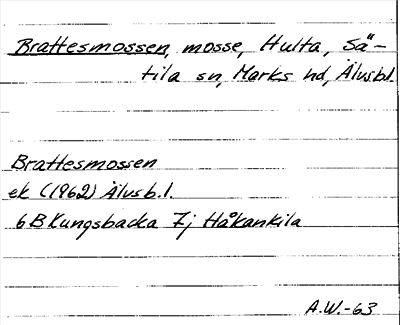 Brattesmossen, mosse, Hulta, Sä-
tila sn, Marks hd, Älvsb.l.
Brattesmossen
ek (1962) Älvsb.l.
6B Kungsbacka 7j Håkankila
A.W.-63